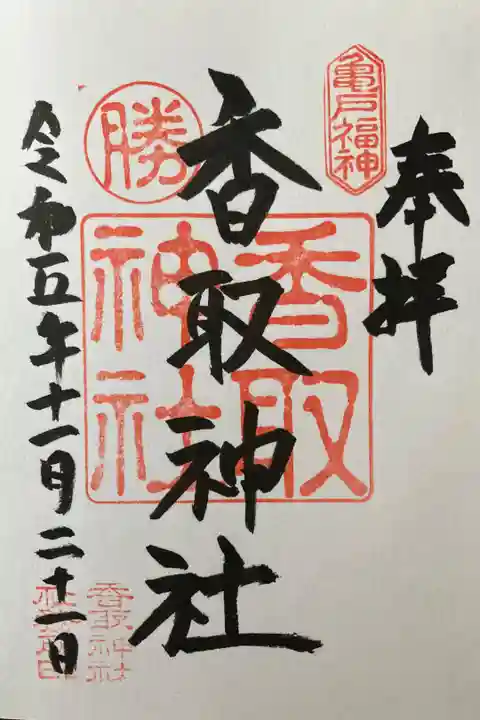 奉拝
亀戸福神
香取神社
香取
神社
勝
令和五年十一月二十一日
香取神社
社務所印